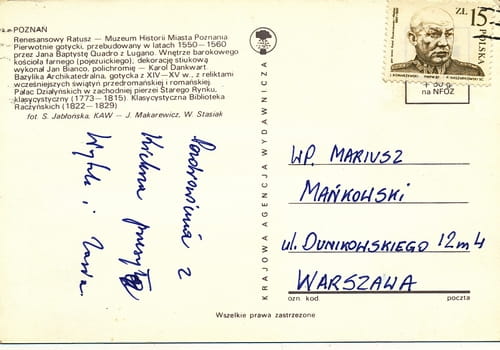 POZNAŃ
Renesansowy Ratusz — Muzeum Historii Miasta Poznania
Pierwotnie gotycki, przebudowany w latach 1550—1560
przez Jana Baptystę Quadro z Lugano. Wnętrze barokowego
kościoła farnego (pojezuickiego); dekorację stiukową
wykonał Jan Bianco, polichromię — Karol Dankwart.
Bazylika Archikatedralna, gotycka z XIV—XV w., z reliktami
wcześniejszych świątyń przedromańskiej i romańskiej
Pałac Działyńskich w zachodniej pierzei Starego Rynku,
klasycystyczny (1773—1815). Klasycystyczna Biblioteka
Raczyńskich (1822—1829)
fot. S. Jabłońska, KAW — J. Makarewicz, W. Stasiak
Pozdrowienia z
przesyła
i
KRAJOWA AGENCJA WYDAWNICZA
ZŁ 15
POLSKA
na NFOZ
WP. MARIUSZ
MAŃKOWSKI
ul. DUNIKOWSKIEGO 12 m 4
WARSZAWA
ozn. kod
poczta
Wszelkie prawa zastrzeżone